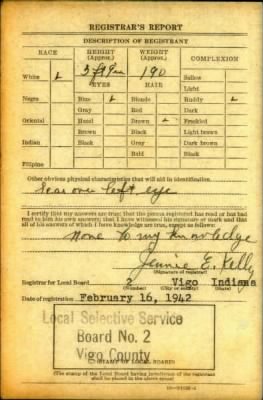 REGISTRAR'S REPORT
DESCRIPTION OF REGISTRANT
RACE HEIGHT (Approx.) WEIGHT (Approx.) COMPLEXION
White 190 Sallow
EYES HAIR Light
Negro Blue Blonde Ruddy
Gray Red Dark
Oriental Hazel Brown Freckled
Brown Black Light brown
Indian Black Gray Dark brown
Bald Black
Filipino
Other obvious physical characteristics that will aid in identification
Scar over left eye
I certify that my answers are true; that the person registered has read or has had
read to him his own answers; that I have witnessed his signature or mark and that
all of his answers of which I have knowledge are true, except as follows:
None to my knowledge
Jennie E. Kelly
(Signature of registrar)
Registrar for Local Board 2 Vigo Indiana
(Number) (City or county) (State)
Date of registration February 16, 1942
Local Selective Service
Board No. 2
Vigo County
(STAMP OF LOCAL BOARD)
(The stamp of the Local Board having jurisdiction of the registrant
shall be placed in the above space)